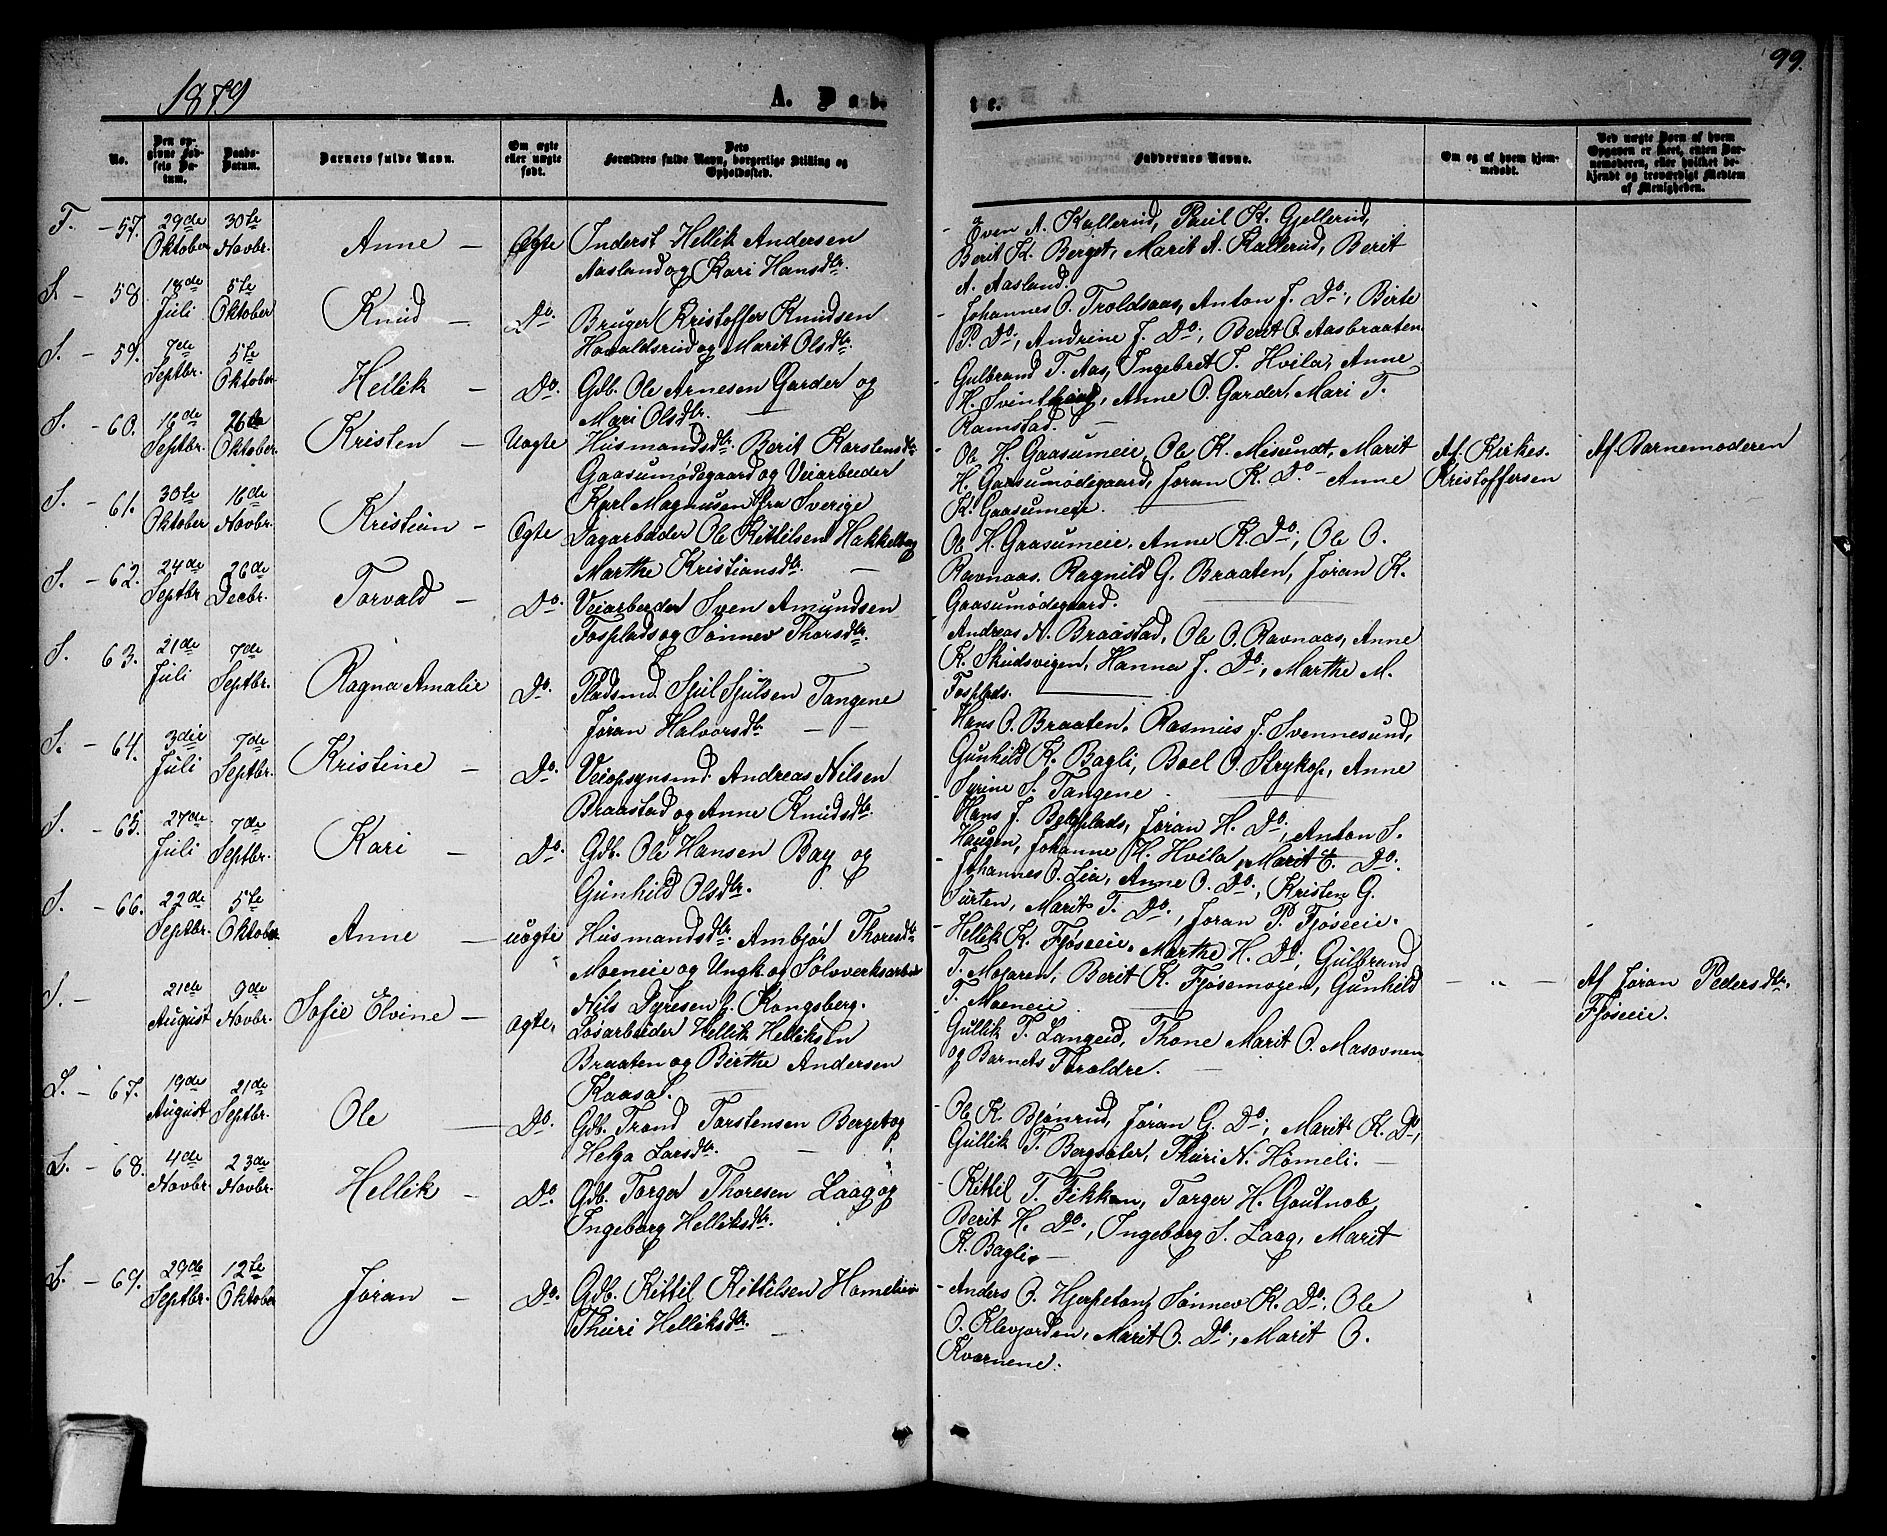 1879
A. Døb-
te.
99.
No.
Den op-
givne Fød-
sels Da-
tum.
Daabs-
Datum.
Barnets fulde Navn.
Om ægte
eller uægte
født.
Dets
Forældres fulde Navn, borgerlige Stilling og
Opholdssted.
Faddernes Navne.
Om og af hvem hjem-
medøbt.
Ved uægte Børn af hvem
Opgaven er skeet, enten Bar-
nemoderen, eller hvilket be-
kjendt og troværdigt Medlem
af Menigheden.
T. - 57. 29de Oktober 30te Novbr. Anne - Ægte
Inderst Hellik Andersen
Aasland og Kari Hansdtr.
- Even A. Kallerud, Paul K. Gjellerud,
Berit K. Berget, Marit A. Kallerud, Berit
A. Aasland.
S. - 58 18de Juli 5te Oktober Knud - Do.
Bruger Kristoffer Knudsen
Havaldsrud og Marit Olsdtr.
- Johannes O. Troldsaas, Anton J. Do., Birte
P. Do., Andrine J. Do., Berit O. Aasbraaten
S. - 59. 7de Septbr. 5te Oktober Hellik - Do.
Gdb. Ole Arnesen Garder og
Mari Olsdtr.
- Gulbrand T. Aas, Ingebret T. Hvila, Anne
H. , Anne O. Garder, Mari T.
Ramstad. -
S. - 60. 16de Septbr. 26de Oktober Kristen - Uægte
Husmandsdtr. Berit Karstensdtr.
Gaasumødegaard og Veiarbeider
Karl Magnusen fra Sverige
Ole H. Gaasumeie, Ole K. Misundt, Marit
H. Gaasumødegaard, Jøran K. Do - Anne
K. Gaasumeie.
Af Kirkes.
Kristoffersen
Af Barnemoderen
S. - 61. 30te Oktober 16de Novbr. Kristian - Ægte
Dagarbeider Ole Kittilsen Hakkelt og
Marthe Kristiansdtr. -
Ole H. Gaasumeie, Anne K. Do., Ole O.
Ravnaas, Ragnild G. Braaten, Jøran K.
Gaasumødegaard.
S. - 62. 24de Septbr. 26de Decbr. Torvald - Do.
Veiarbeider Sven Amundsen
Fosplads og Sønnev Thorsdtr.
- Andreas N. Braastad, Ole O. Ravnaas, Anne
K. Skudsvigen, Hanna J. Do., Marthe M.
Fosplads.
S. - 63. 21de Juli 7de Septbr. Ragna Amalie Do.
Pladsmd. Sjul Sjulsen Tangene
Jøran Halvorsdtr. - -
- Hans O. Braaten, Rasmus J. Svennesund,
Gunhild K. Bagli, Boel O. Strykop, Anne
Syrine S. Tangene.
S. - 64. 3die Juli 7de Septbr. Kristine - Do.
Veiopsynsmd. Andreas Nilsen
Braastad og Anne Knudsdtr.
- Hans J. Bergplads, Jøran H. Do., Anton S.
Haugen, Johanne H. Hvila, Marit E. Do.
S. - 65. 27de Juli 7de Septbr. Kari - Do.
Gdb. Ole Hansen Bay og
Gunhild Olsdtr.
- Johannes O. Lia, Anne O. Do., Kristen G.
Surten, Marit T. Do., Jøran P. Fjøseeie.
S. - 66. 22de Septbr. 5te Oktober Anne - uægte
Husmandsdtr. Ambjør Thoresdtr.
Moeneie og Ungk. og Sølvverksarbeider
Nils Dyresen f. Kongsberg.
- Hellik K. Fjøseeie, Marthe H. Do., Gulbrand
T. Mogaren, Berit K. Fjøsemogen, Gunhild
T. Moeneie
- „ -
Af Jøran Pedersdtr.
Fjøseeie.
S. - 21de August 9de Novbr. Sofie Elvine - ægte.
Løsarbeider Hellik Helliksen
Braaten og Birthe Andersen
Kaasa.
Gullik T. Langeid, Thone Marit O. Masovnen
og Barnets Forældre. -
S. - 67. 19de August 21de Septbr. Ole - Do.
Gdb. Trond Torstensen Berget og
Helga Larsdtr. -
- Ole K. Bjønrud, Jøran G. Do., Marit K. Do,
Gullik T. Bergsæter, Thuri N. Homeli. -
S. - 68. 4de Novbr. 23de Novbr. Hellik - Do.
Gdb. Torger Thoresen Laag og
Ingeborg Helliksdtr.
- Kittil T. Fikkan, Torger H. Goutnob
Berit H. Do., Ingeborg S. Laag, Marit
K. Bagli. -
S. - 69. 29de Septbr. 12te Oktober Jøran - Do.
Gdb. Kittil Kittilsen Homelien
Thuri Helliksdtr. -
- Anders O. Hjerpeton, Sønnev K. Do., Ole
O. Klevjorden, Marit O. Do., Marit O.
Kvernene.